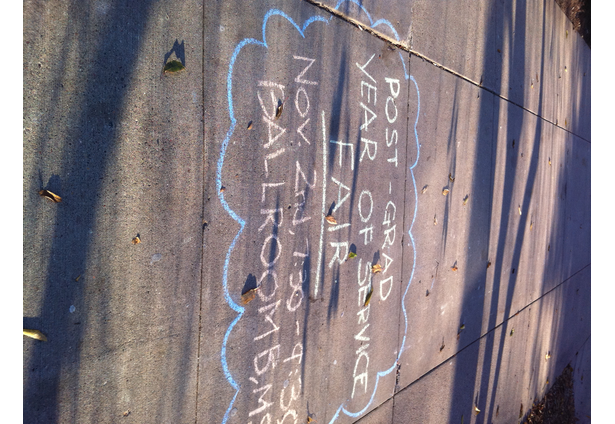 POST-GRAD
YEAR OF SERVICE
FAIR
NOV. 2nd, 7:30-9:30
BALLROOM B,